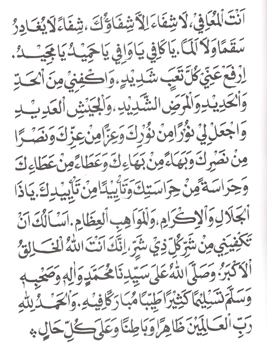 اَنْتَ الْمُعَافِي، لَا شِفَاءَ اِلَّا شِفَاؤُكَ، شِفَاءً لَا يُغَادِرُ
سَقَمًا وَلَا اَلَمًا. يَا كَافِي يَا وَافِي يَا حَمِيدُ يَا مَجِيدُ.
اِرْفَعْ عَنِّي كُلَّ تَعَبٍ شَدِيدٍ، وَاكْفِنِي مِنَ الْحَدِّ
وَالْحَدِيدِ وَالْمَرَضِ الشَّدِيدِ، وَالْجَيْشِ الْعَدِيدِ
وَاجْعَلْ لِي نُورًا مِنْ نُورِكَ وَعِزًّا مِنْ عِزِّكَ وَنَصْرًا
مِنْ نَصْرِكَ وَبَهَاءً مِنْ بَهَائِكَ وَعَطَاءً مِنْ عَطَائِكَ
وَحِرَاسَةً مِنْ حِرَاسَتِكَ وَتَأْيِيدًا مِنْ تَأْيِيدِكَ. يَاذَا
الْجَلَالِ وَالْاِكْرَامِ، وَالْمَوَاهِبِ الْعِظَامِ. اَسْأَلُكَ اَنْ
تَكْفِيَنِي مِنْ شَرِّ كُلِّ ذِي شَرٍّ. اِنَّكَ اَنْتَ اللهُ الْخَالِقُ
الْاَكْبَرُ. وَصَلَّى اللهُ عَلَى سَيِّدِنَا مُحَمَّدٍ وَاٰلِهِ وَصَحْبِهِ
وَسَلَّمَ تَسْلِيمًا كَثِيرًا طَيِّبًا مُبَارَكًا فِيهِ. وَالْحَمْدُ لِلهِ
رَبِّ الْعَالَمِينَ ظَاهِرًا وَبَاطِنًا وَعَلَى كُلِّ حَالٍ